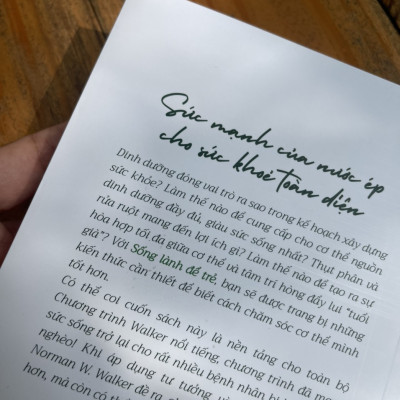 Sức mạnh của nước ép
cho sức khoẻ toàn diện
Dinh dưỡng đóng vai trò ra sao trong kế hoạch xây dựng
sức khỏe? Làm thế nào để cung cấp cho cơ thể nguồn
dinh dưỡng đầy đủ, giàu sức sống nhất? Thụt phân và
rửa ruột mang đến lợi ích gì? Làm thế nào để tạo ra sự
hòa hợp tối đa giữa cơ thể và tâm trí hòng đẩy lui "tuổi
già"? Với Sống lành để trẻ, bạn sẽ được trang bị những
kiến thức cần thiết để biết cách chăm sóc cơ thể mình
tốt hơn.
Có thể coi cuốn sách này là nền tảng cho toàn bộ
Chương trình Walker nổi tiếng, chương trình đã mang
sức sống trở lại cho rất nhiều bệnh nhân
nghèo! Khi áp dụng tư tưởng
Norman W. Walker đề ra,
hơn, mà còn có thể